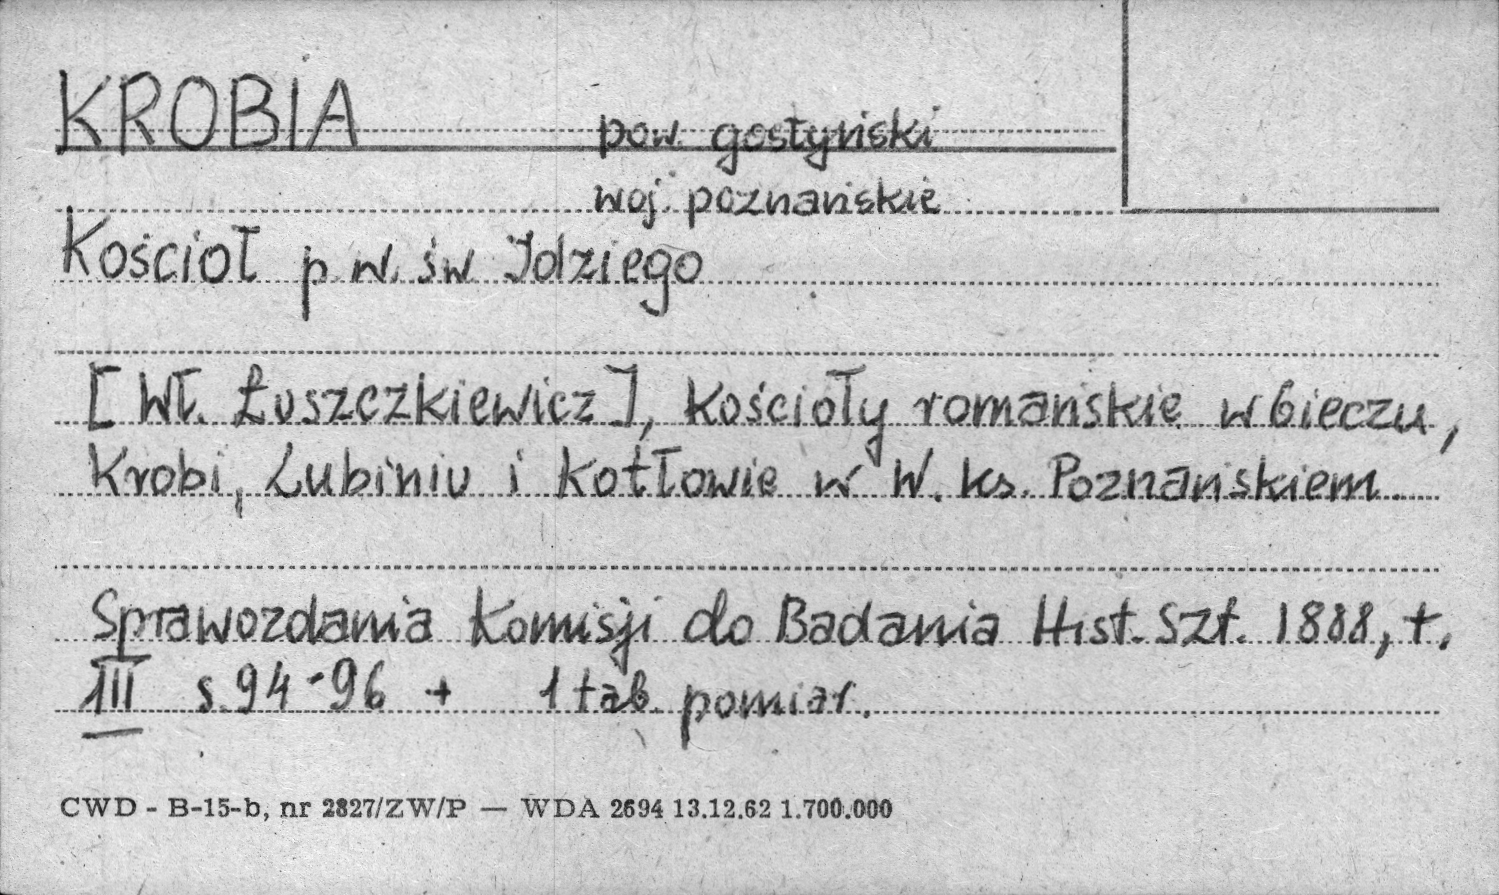 KROBIA
pow. gostyński
woj. poznańskie
Kościoł p.w. św Idziego
[Wł. Łuszczkiewicz], Kościoły romańskie w Gieczu,
Krobi, Lubiniu i Kotłowie w W. ks. Poznańskiem
Sprawozdania Komisji do Badania Hist. Szt. 1888, t.
III s. 94-96 + 1 tab. pomiar.
CWD - B-15-b, nr 2827/ZW/P — WDA 2694 13.12.62 1.700.000